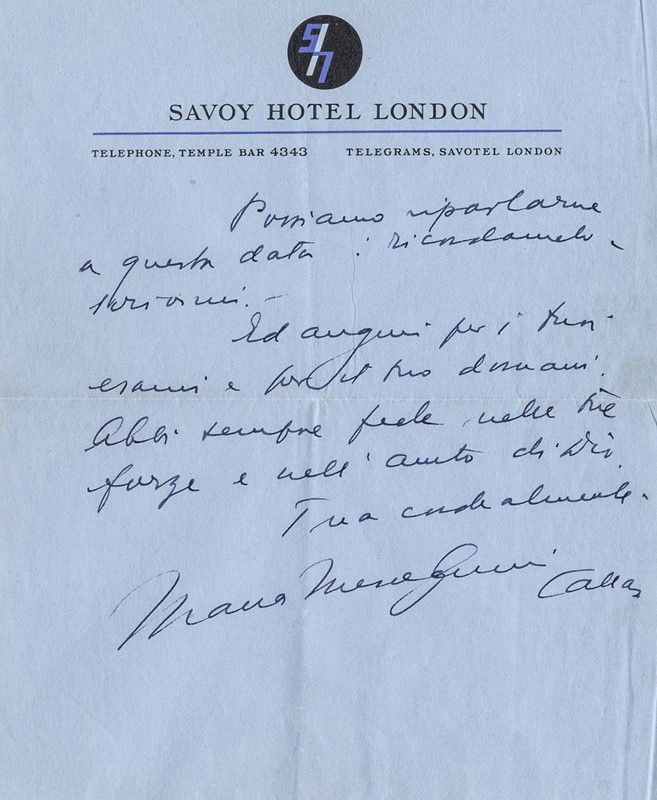 SH
SAVOY HOTEL LONDON
TELEPHONE, TEMPLE BAR 4343 TELEGRAMS, SAVOTEL LONDON
Possiamo riparlarne
a questa data : ricordamelo -
scrivimi. -
Ed auguri per i tuoi
esami e per il tuo domani.
Abbi sempre fede nelle tue
forze e nell' aiuto di Dio.
Tua cordialmente.
Maria Meneghini Callas